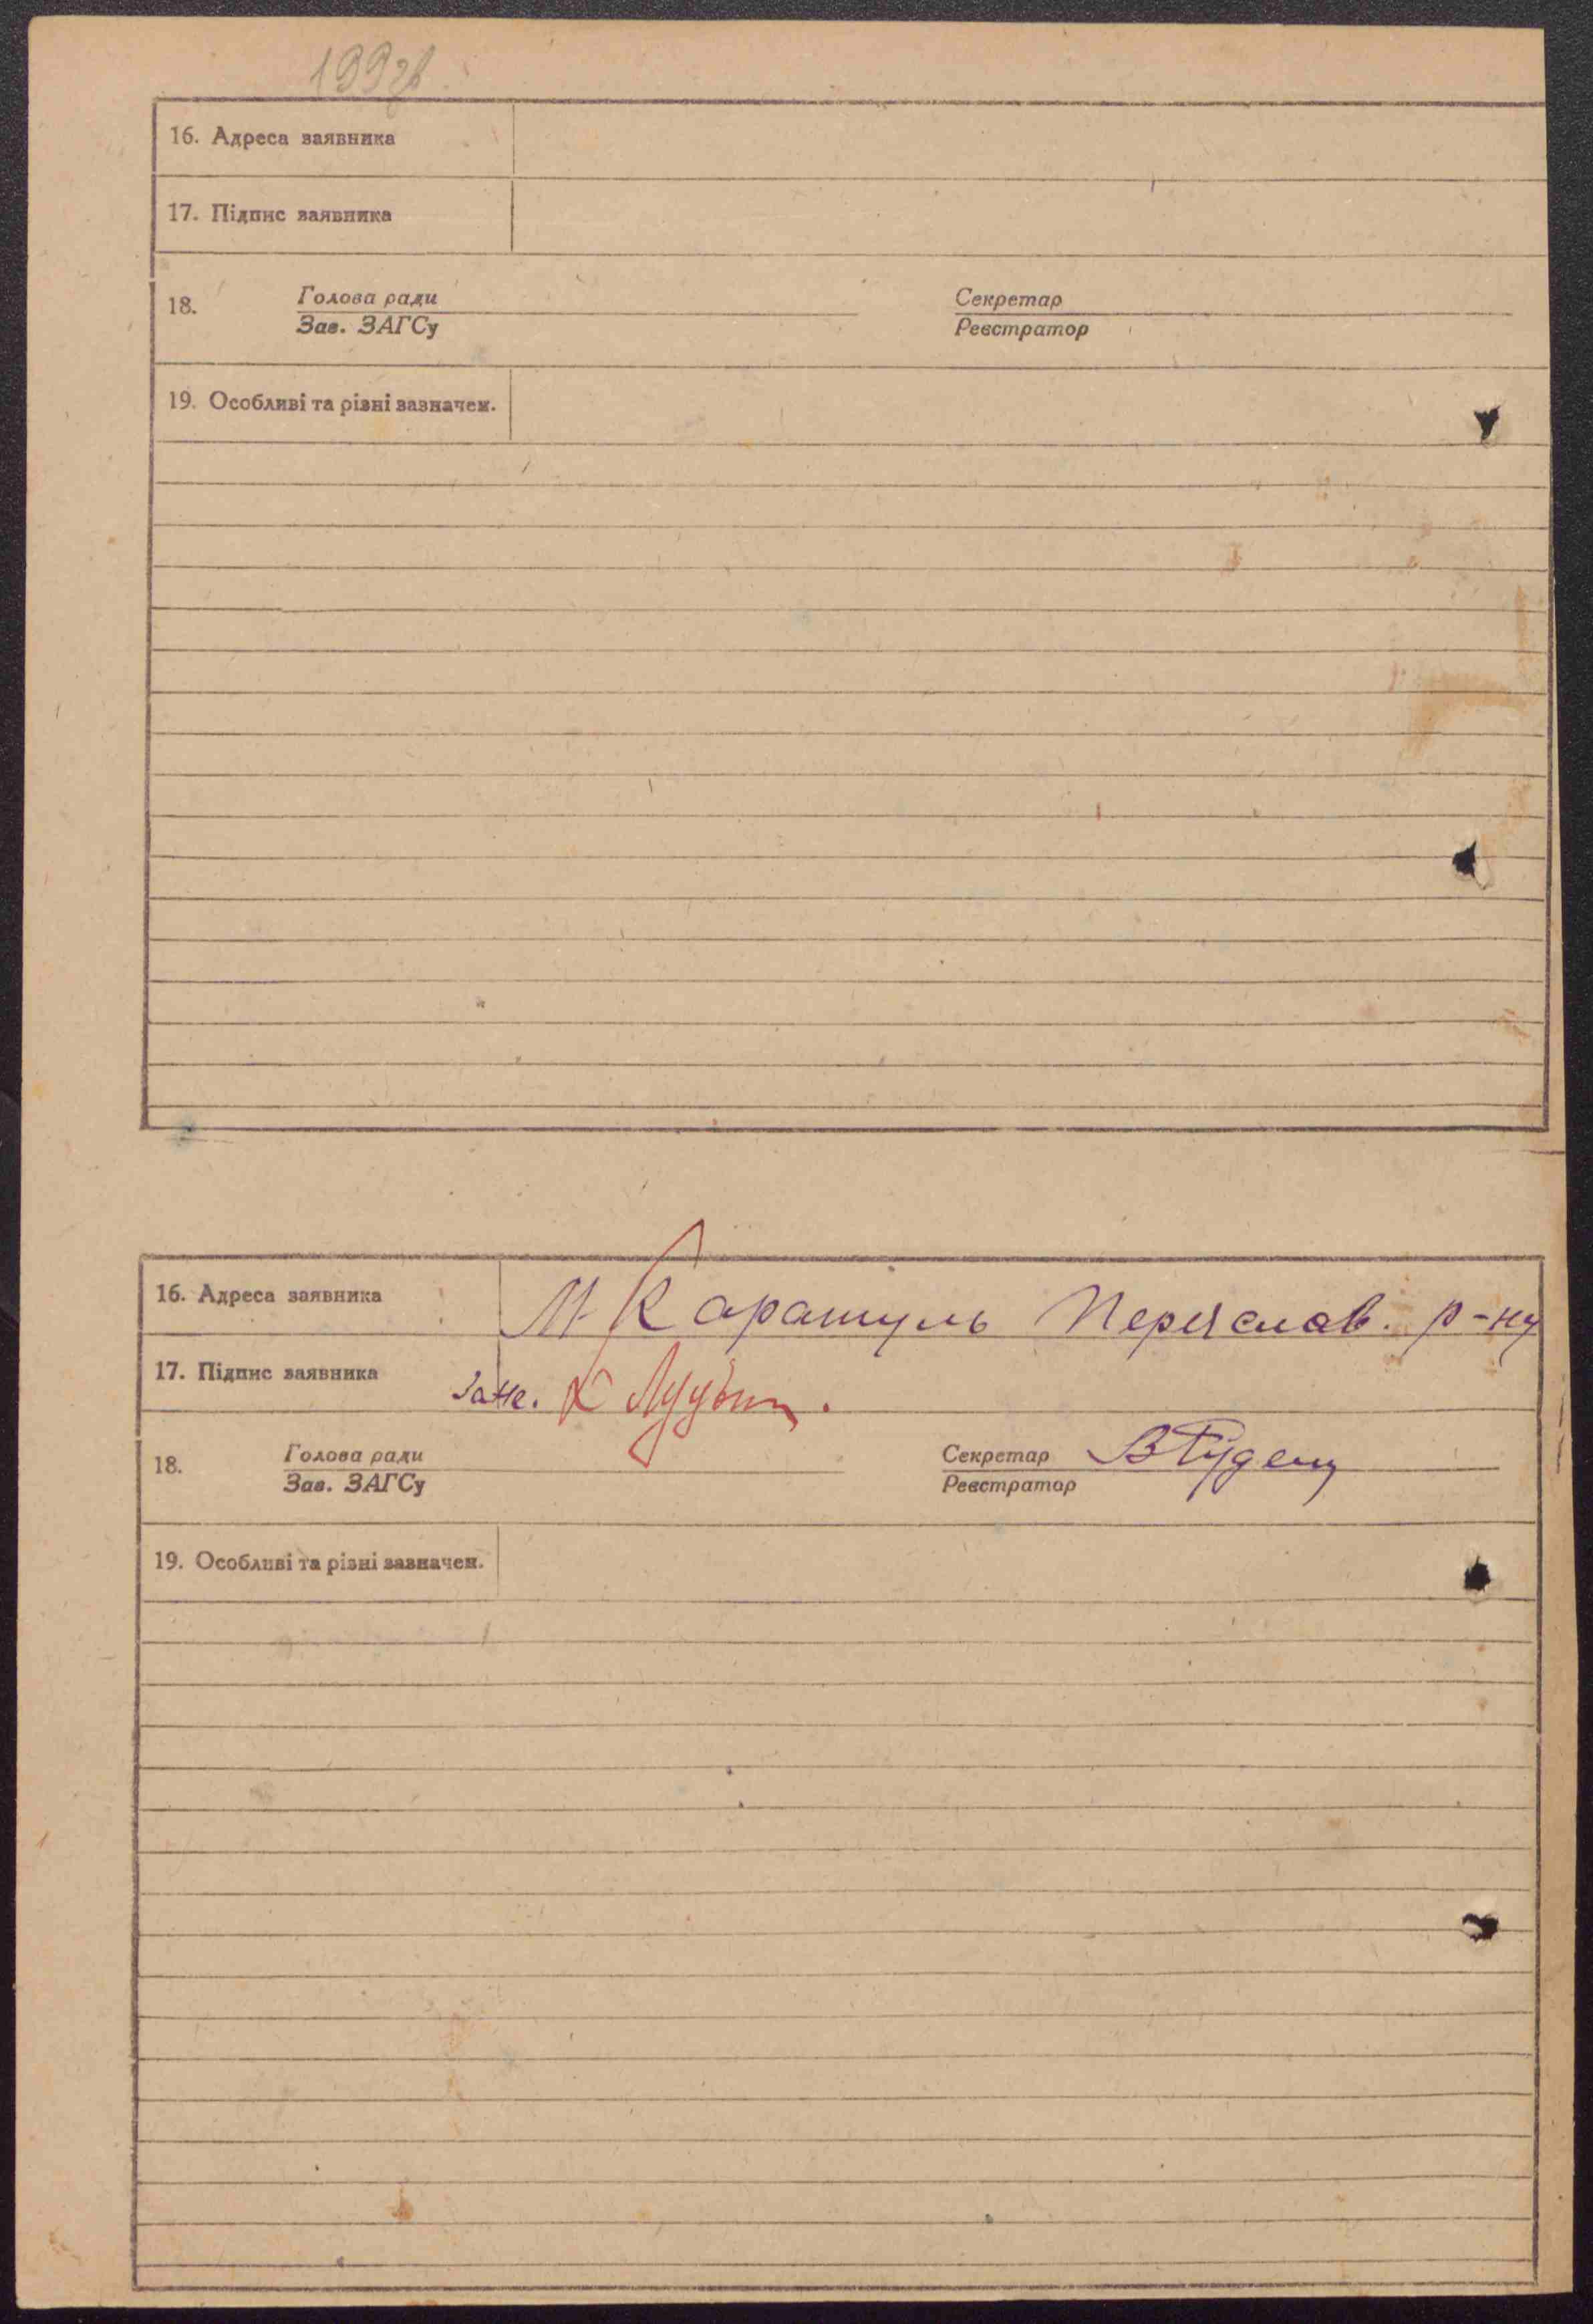 16. Адреса заявника
17. Підпис заявника
18. Голова ради Секретар
Зав. ЗАГСу Реєстратор
19. Особливі та різні зазначен.
16. Адреса заявника М Каратуль Переяслав. р-ну
17. Підпис заявника
18. Голова ради Секретар
Зав. ЗАГСу Реєстратор
19. Особливі та різні зазначен.